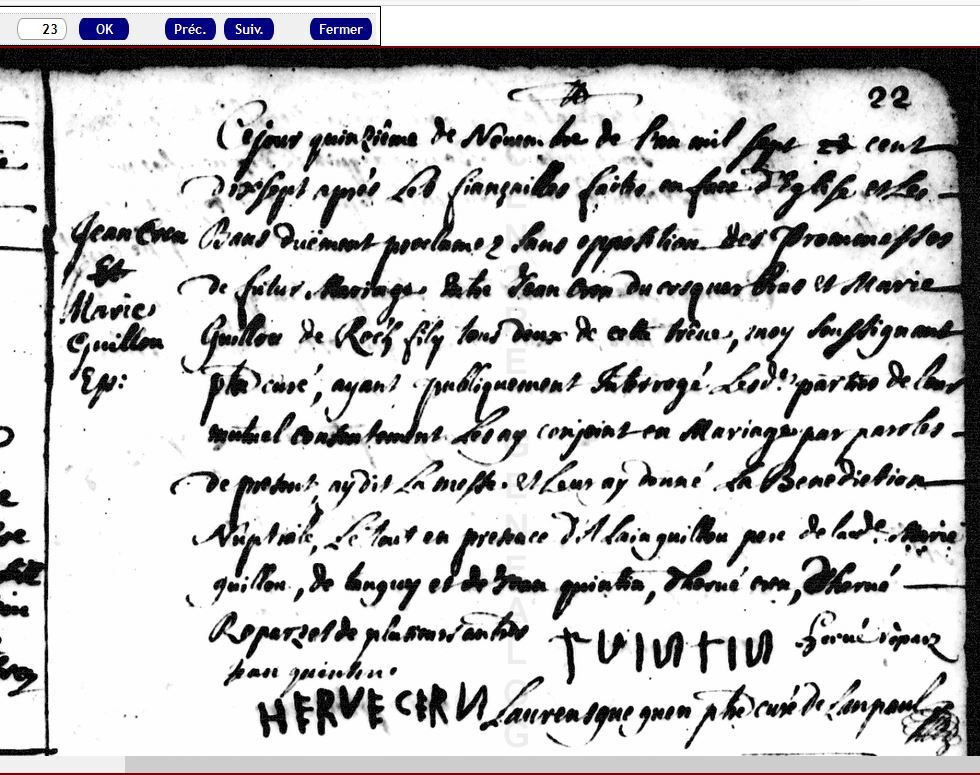 23 OK Préc. Suiv. Fermer
22
Ce jour quinzième de Novembre de l'an mil sept cent
Dixsept après Les fiançailles faites en face d'Eglise et Les
Jean Cren
Bans duëment proclamez sans opposition des Promnesses
Et
de futur Mariage Entre Jean Cren du cosquer bras et Marie
Marie
Guillou de Roc'h fily tous deux de cette trêve, moy soussignant
Guillou
Ep:
ptre curé, ayant publiquement Interrogé Lesd. parties de leur
mutuel consentement Les ay conjoint en Mariage par paroles
de present, ay dit La messe et Leur ay donné La Benediction
Nuptiale, Le tout en presence d'Allain guillou pere de lad. Marie
guillou, de tanguy et de Jean quintin, d'hervé cren, d'hervé
Reparz et de plusieurs autres
T VINTIN
hervé reparz
jean quintin
HERVE CERN
Laurens queguen ptre curé de Lanpaul